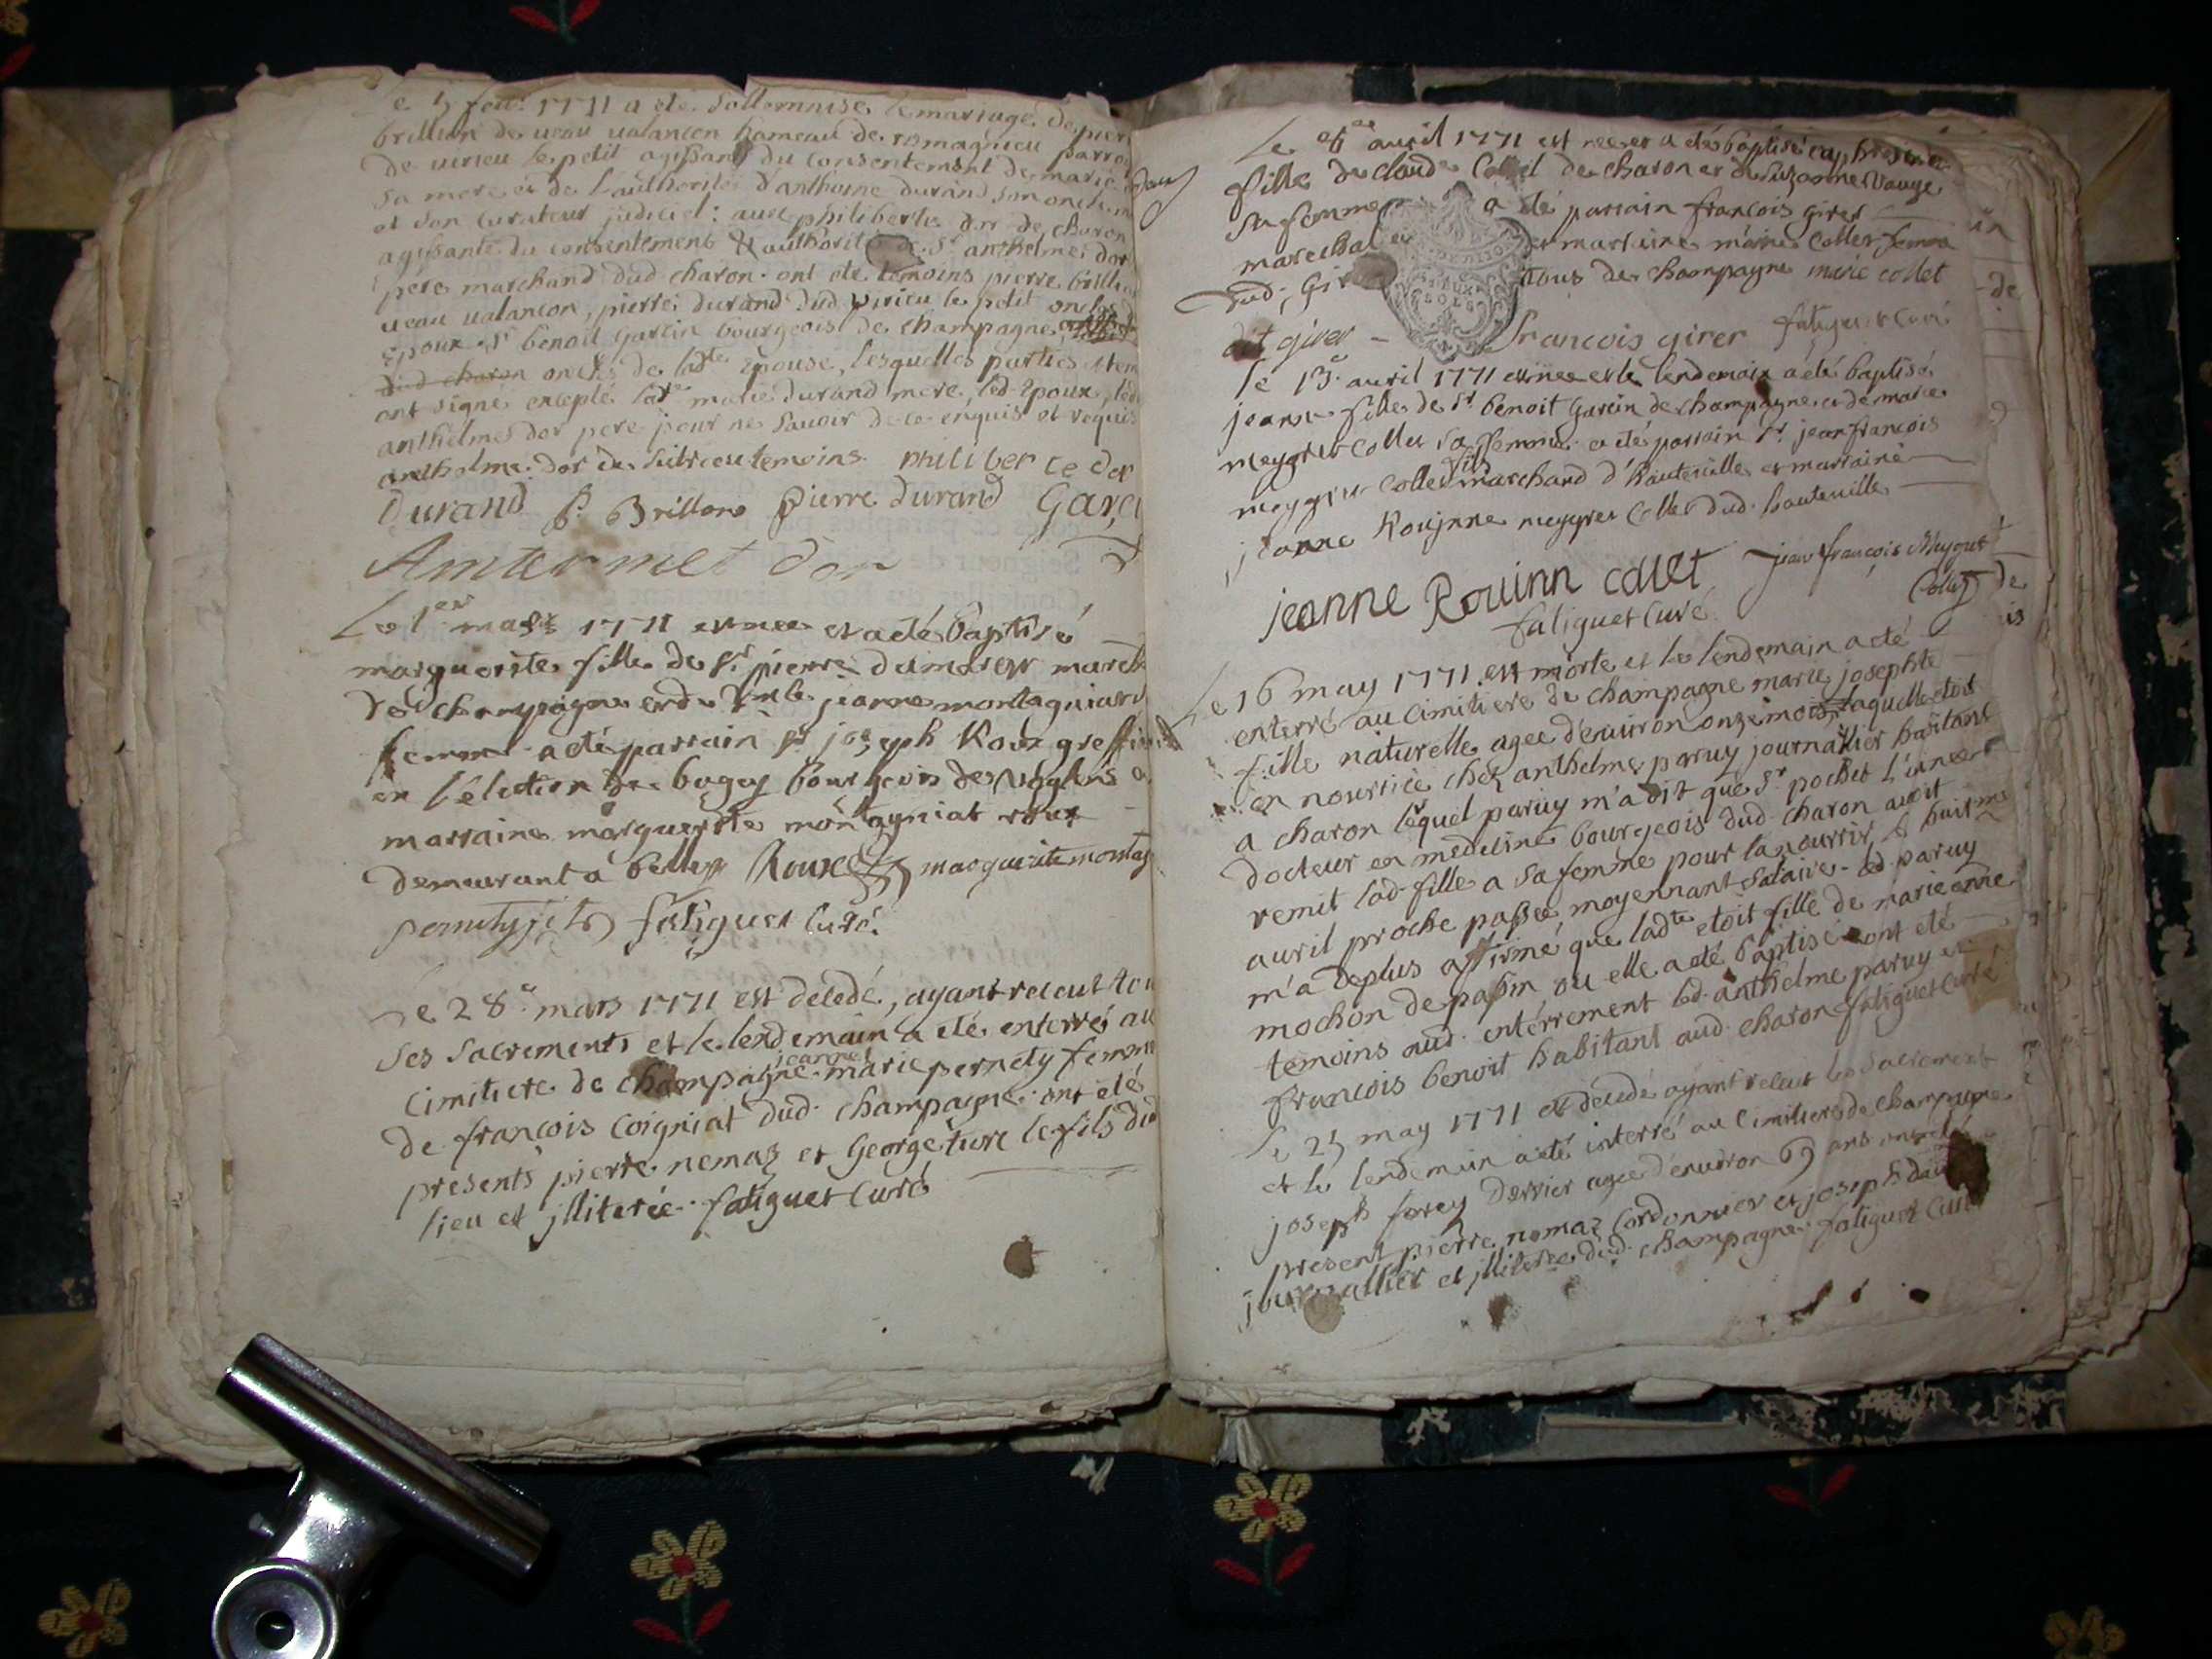 feu. 1771 a eté sollemnisé le mariage de pier
brillion de ueau ualancon hameau de romagnieu parro
de uirieu le petit agissant du consentement de marie
sa mere et de l'authorité d'anthoine durand son oncle
et son curateur judiciel: auec philiberte dor de charon
agissante du consentement & authorité de Sr. anthelme dor
pere marchand dud charon. ont eté temoins pierre brillion
ueau ualancon, pierre durand dud uirieu le petit oncles
epoux Sr benoit garcin bourgeois de champagne
dud charon oncles de ladte epouse, lesquelles parties et tem
ont signé excepté ladte marie durand mere, led epoux, led
anthelme dor pere pour ne sauoir de ce enquis et requis
anthelme dor de temoins. philiberte dor
durand p. Brillion pierre durand Garci
Antermet dor
Le 1er mars 1771 est nee et a eté baptisé
marguerite fille de Sr. pierre dumarest march
de champagne et de Dmlle jeanne montagniard
femme a eté parrain Sr joseph Roux greffier
en l'election de bugey bourgeois de
marraine marguerite montagniat roux
demeurant a belley Roux marguerite montag
faliguet curé.
Le 28e mars 1771 est decedé, ayant receut tou
ses sacrements et le lendemain a eté enterré au
cimitiere de champagne jeanne marie pernety femme
de francois Coigniat dud. champagne. ont eté
presents pierre nemaz et George tiure le fils dud
lieu et jlliterée. faliguet curé
Le auril 1771 est nee et a eté baptisé
fille de claude Collet de charon et de suzanne Vauge
sa femme a eté parrain francois girer
marechal et marraine marie collet femme
dud. Gir tous de champagne marie collet
dit girer - francois girer faliguet curé
le 13e auril 1771 est nee et le lendemain a eté baptisé
jeanne fille de Sr. benoit garcin de champagne et de marie
meygret collet sa femme a eté parrain Sr. jean francois
meygret collet fils marchand d'hauteuille et marraine
jeanne Rouinne meygret collet dud. hauteuille
jeanne Rouinn collet jean françois Meygret
faliguet curé. Collet
Le 16 may 1771 est morte et le lendemain a eté
enterré au cimitiere de champagne marie josephte
fille naturelle agee d'enuiron onze mois laquelle etoit
en nourrice chez anthelme paruy journallier habitant
a charon lequel paruy m'a dit que Sr pochet l'
docteur en medecine bourgeois dud charon auoit
remit lad. fille a sa femme pour la nourrir, le huit me
auril proche passée moyennant salaire. led. paruy
m'a deplus affirmé que ladte etoit fille de marieanne
mochon de passin ou elle a eté baptisé ont eté
temoins aud. entérrement led. anthelme paruy et
francois benoit habitant aud. charon faliguet curé
Le 25 may 1771 est décédé ayant receut les sacrement
et le lendemain a eté enterré au cimitiere de champagne
joseph forey derrier agee d'enuiron 69 ans ont eté
present pierre nemaz cordonnier et joseph
journallier et jlliterée dud. champagne. faliguet curé